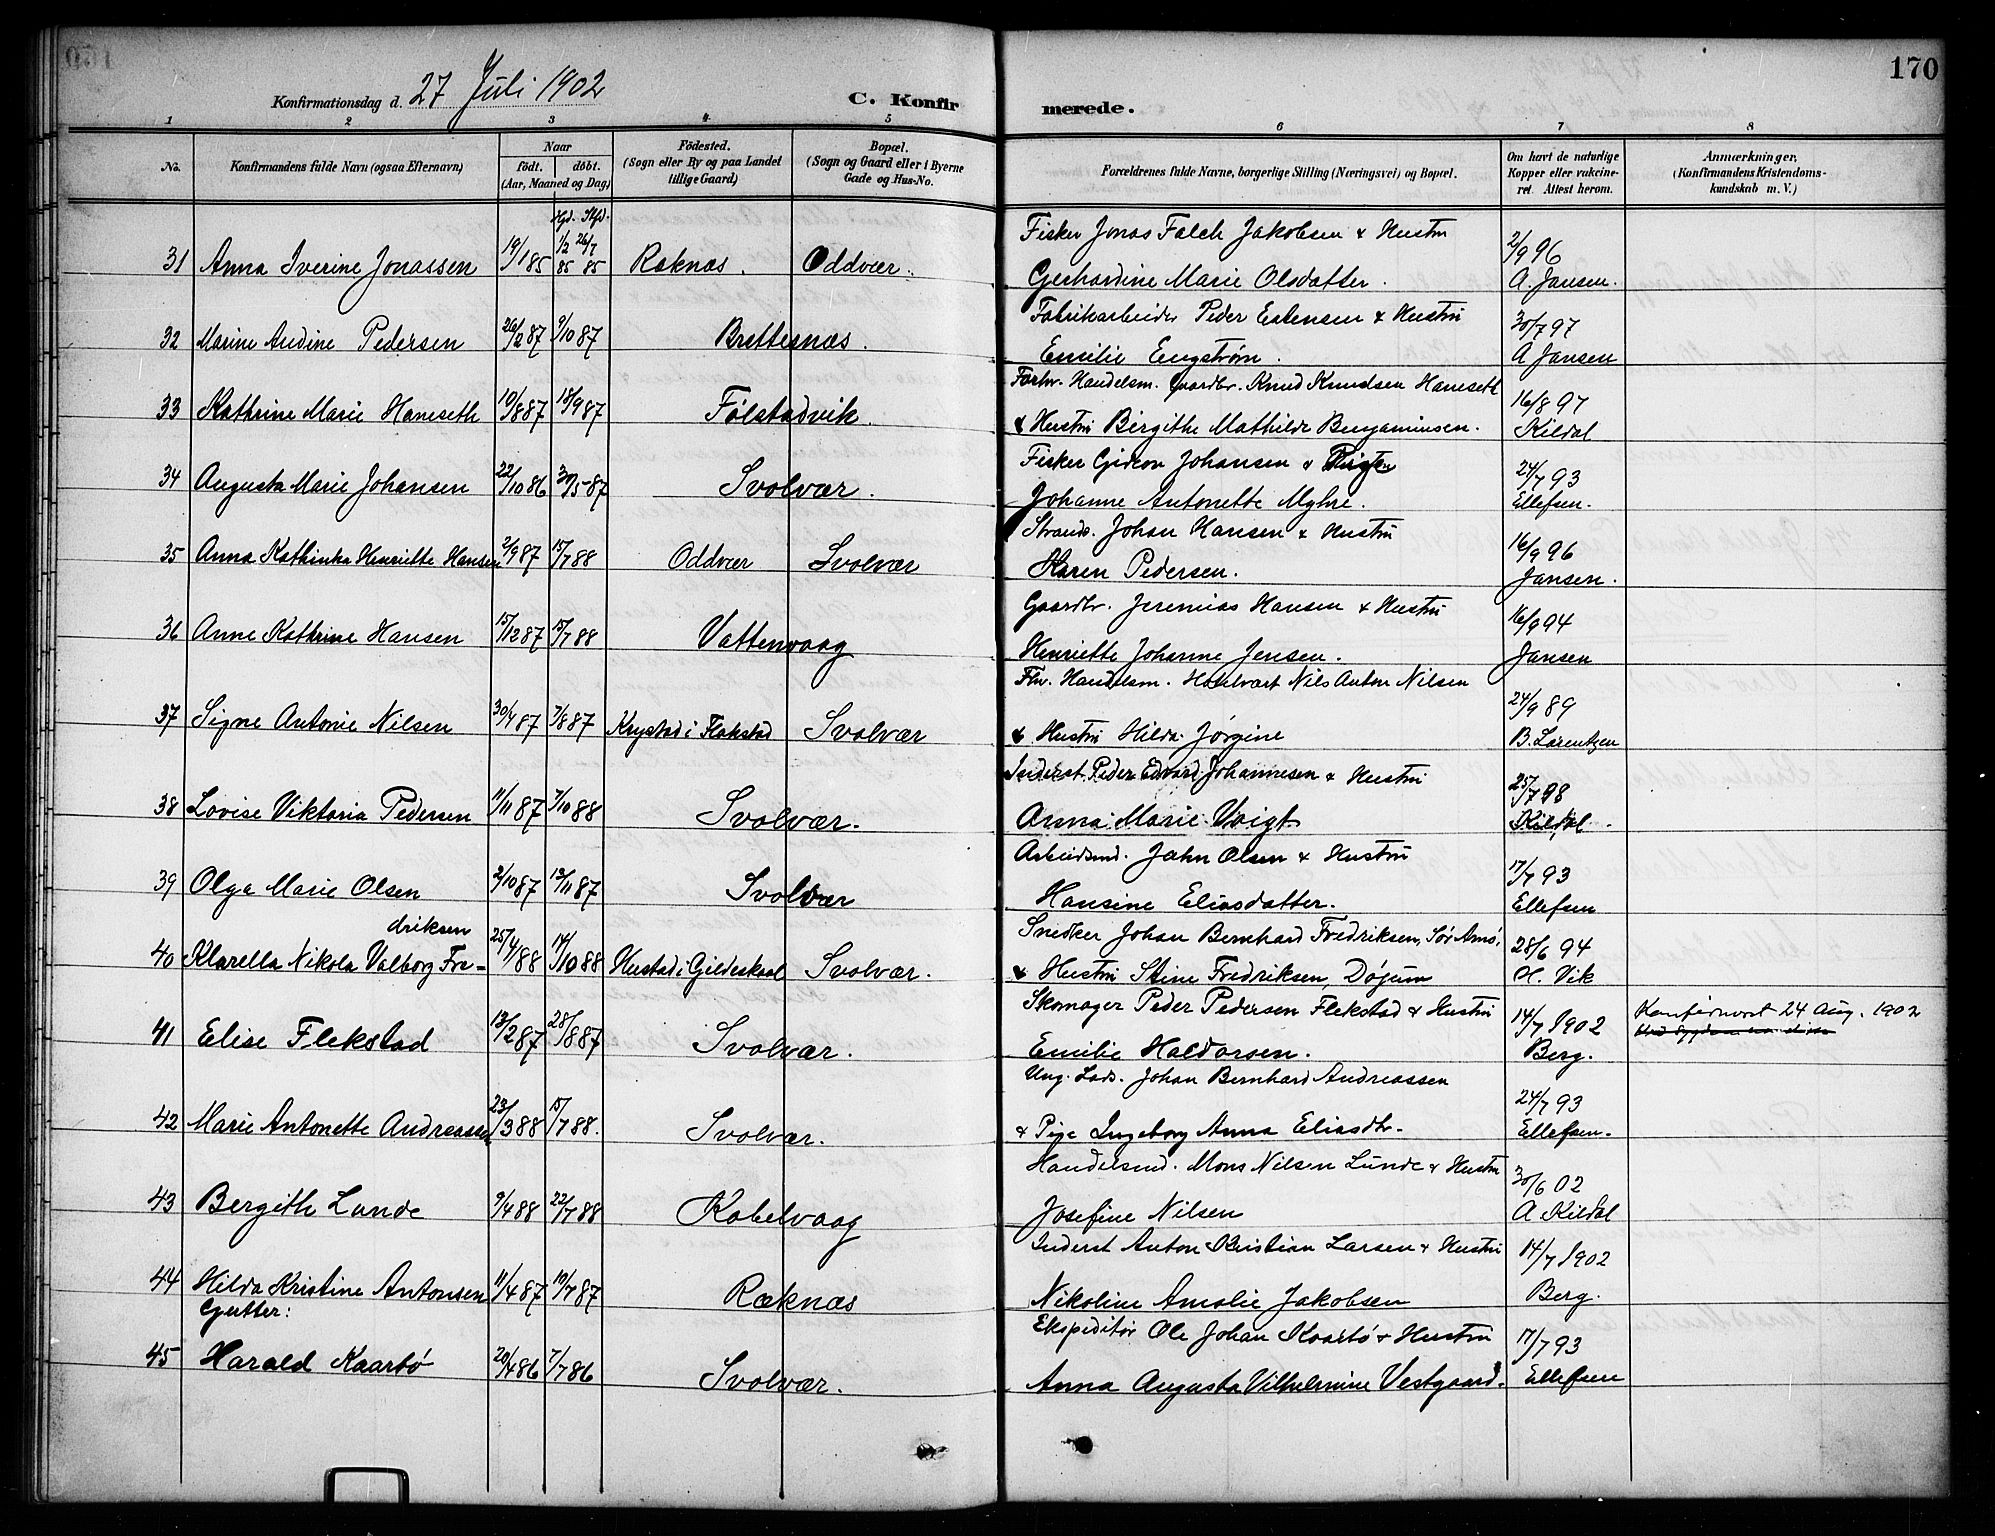 170
Konfirmationsdag d. 27 Juli 1902 C. Konfirmerede.
1 2 3 4 5 6 7 8
No. Konfirmandens fulde Navn (ogsaa Efternavn) Naar født. døbt. (Aar, Maaned og Dag) Fødested. (Sogn eller By og paa Landet tillige Gaard) Bopæl. (Sogn og Gaard eller i Byerne Gade og Hus-No. Forældrenes fulde Navne, borgerlige Stilling (Næringsvei) og Bopæl. Om havt de naturlige Kopper eller vakcineret. Attest herom. Anmærkninger, (Konfirmandens Kristendomskundskab m. V.)
Hjd. Stfd.
31 Anna Iverine Jonassen 19/1 85 1/2 85 26/7 85 Reknæs. Oddvær. Fisker Jonas Falch Jakobsen & Hustru 2/9 96
Gerhardine Marie Olsdatter. A. Jansen.
32 Marine Audine Pedersen 26/2 87 9/10 87 Brettesnæs. Fabrikarbeider Peder Estensen & Hustru 30/7 97
Emilie Engstrøm. A Jansen
33 Kathrine Marie Haneseth 10/8 87 18/9 87 Følstadvik. Forhv. Handelsm. Gaardbr. Knud Knudsen Haneseth 16/8 97
& Hustru Birgithe Mathilde Benjaminsen. Kildal
34 Augusta Marie Johansen 22/10 86 30/5 87 Svolvær. Fisker Gideon Johansen & 24/7 93
Johanne Antonette Myhre. Ellefsen.
35 Anna Kathinka Henriette Hansen 2/9 87 15/7 88 Oddvær Svolvær Strands. Johan Hansen & Hustru 16/9 96
Maren Pedersen. Jansen.
36 Anne Kathrine Hansen 15/12 87 15/7 88 Vattenvaag Gaardbr. Jeremias Hansen & Hustru 16/9 94
Henriette Johanne Jensen. Jansen
37 Signe Antonie Nilsen 30/4 87 7/8 87 Krystad i Flakstad Svolvær Fhv. Handelsm. Nils Anton Nilsen 24/9 89
& Hustru Hilda Jørgine B. Lorentzen
38 Lovise Viktoria Pedersen 11/11 87 7/10 88 Svolvær. Inderst. Peder Edvard Johannesen & Hustru 25/7 98
Anna Marie Voigt Kildal.
39 Olga Marie Olsen 2/10 87 13/11 87 Svolvær Arbeidsmd. Jahn Olsen & Hustru 17/7 93
Hansine Eliasdatter. Ellefsen
40 Klarella Nikola Valborg Fredriksen 25/4 88 14/10 88 Hustad i Gildeskaal Svolvær. Snedker Johan Bernhard Fredriksen, Sør Arnø, 28/6 94
& Hustru Stine Fredriksen, Døjum H. Vik
41 Elise Flekstad 13/2 87 28/8 87 Svolvær. Skomager Peder Pedersen Flekstad & Hustru 14/7 1902 Konfirmert 24 Aug. 1902
Emilie Haldorsen. Berg.
42 Marie Antonette Andreassen 23/3 88 15/7 88. Svolvær. Ung. Lods. Johan Bernhard Andreassen 24/7 93
& Pige Ingeborg Anna Eliasdtr. Ellefsen.
43 Bergith Lunde 9/4 88 22/7 88 Kabelvaag Handelsmd. Mons Nilsen Lunde & Hustru 30/6 02
Josefine Nilsen A Kildal
44 Hilda Kristine Antonsen 11/4 87 10/7 87 Ræknæs Inderst Anton Kristian Larsen & Hustru 14/7 1902
Nikoline Amalie Jakobsen Berg.
Gutter:
45 Harald Kaarbø 20/4 86 7/7 86 Svolvær. Ekspeditør Ole Johan Kaarbø & Hustru 17/7 93
Anna Augusta Vilhelmine Vestgaard. Ellefsen